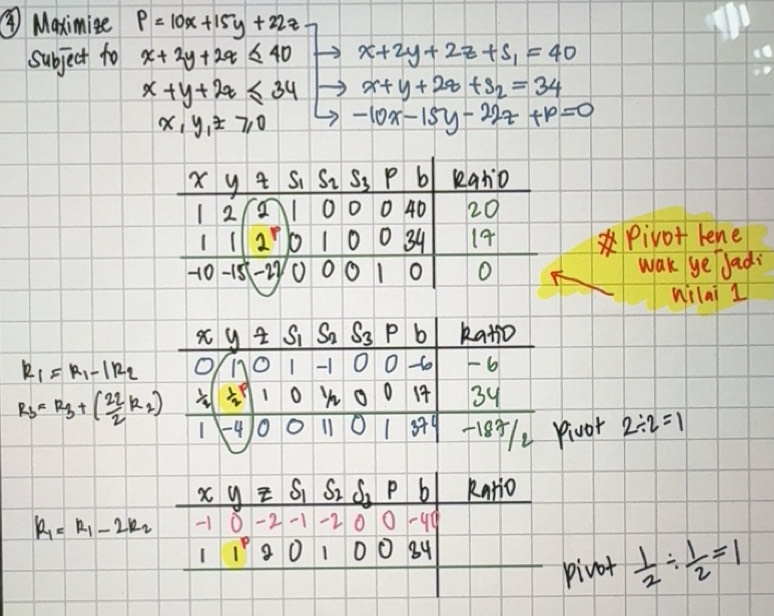 ④ Maximize P = 10x + 15y + 22z
Subject to x + 2y + 2z ≤ 40 → x + 2y + 2z + S₁ = 40
x + y + 2z ≤ 34 → x + y + 2z + S₂ = 34
x, y, z ≥ 0 → -10x - 15y - 22z + P = 0
x y z S₁ S₂ S₃ P b Ratio
1 2 2 1 0 0 0 40 20
1 1 2 P 0 1 0 0 34 17
-10 -15 -22 0 0 0 1 0 0
* Pivot kene
wak ye jadi
nilai 1
x y z S₁ S₂ S₃ P b Ratio
R₁ = R₁ - 1R₂ 0 1 0 1 -1 0 0 -6 -6
R₃ = R₃ + (22/2 R₂) ½ ½ P 1 0 ½ 0 0 17 34
1 -4 0 0 11 0 1 374 -187/2 pivot 2÷2=1
x y z S₁ S₂ S₃ P b Ratio
R₁ = R₁ - 2R₂ -1 0 -2 -1 -2 0 0 -40
1 1 P 2 0 1 0 0 34
pivot ½ ÷ ½ = 1